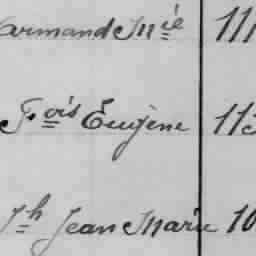 armand Mie 111
Fois Eugène 113
Jh Jean Marie 10